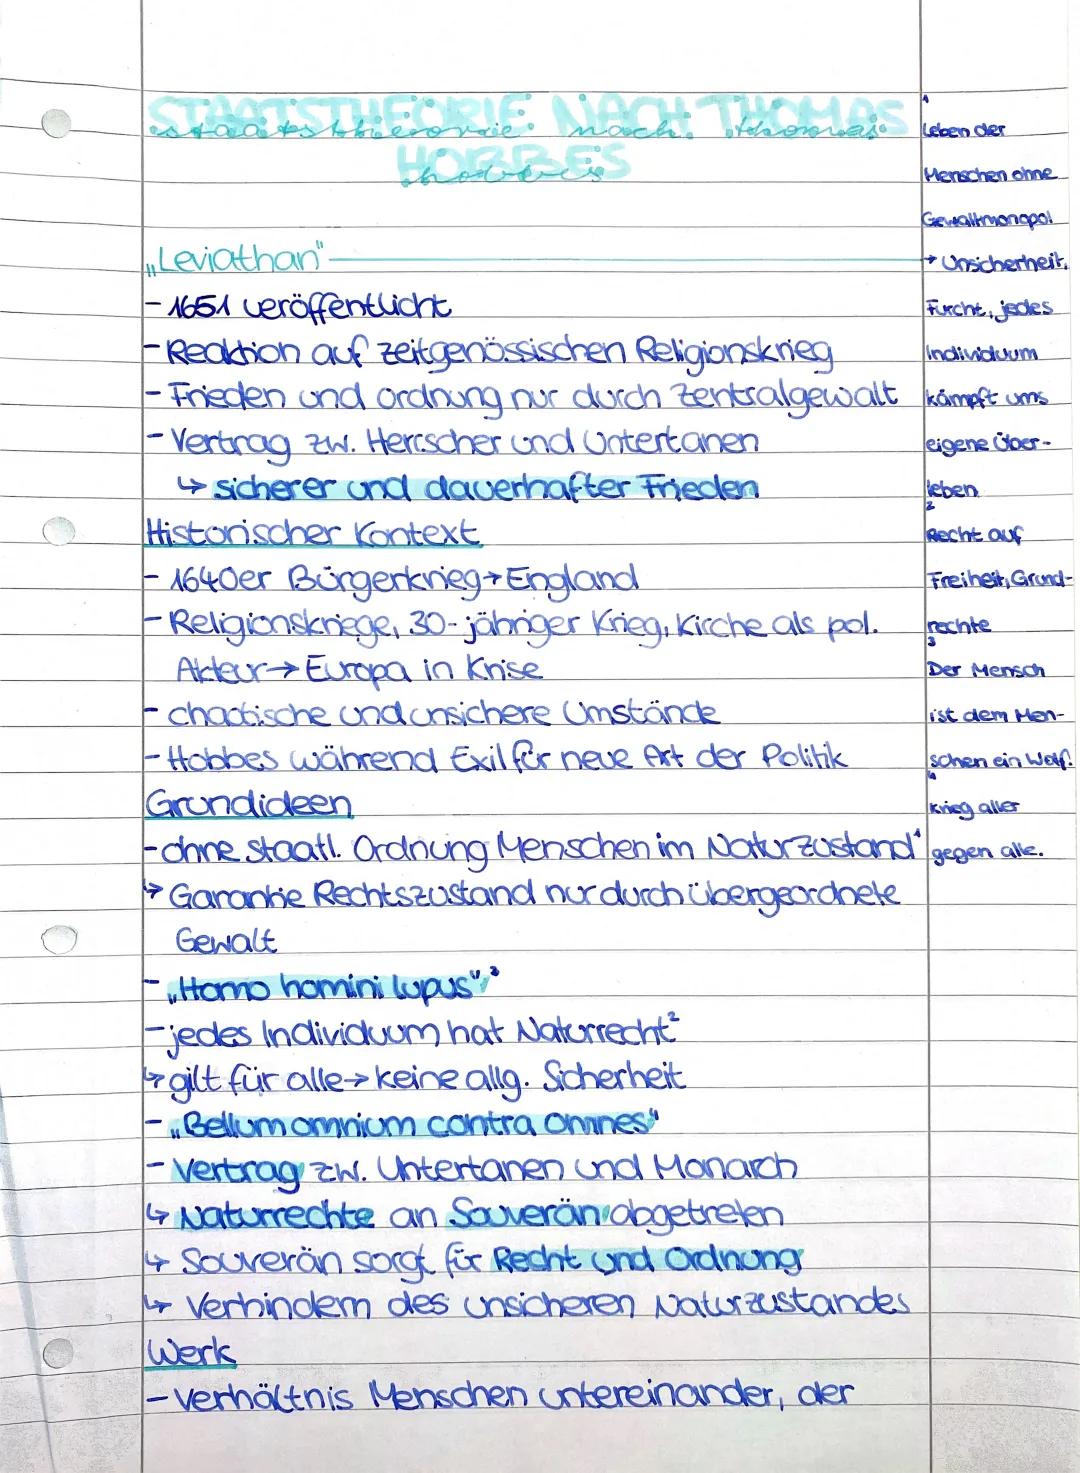 STAATSTHEORIE NACH THOMAS
staatstheorie nach thomas
HOBBES
hobbes
„Leviathan"
- 1651 veröffentlicht
- Reaktion auf zeitgenössischen Religionskrieg
- Frieden und Ordnung nur durch Zentralgewalt
- Vertrag zw. Herrscher und Untertanen
↳ sicherer und dauerhafter Frieden
Historischer Kontext
- 1640er Bürgerkrieg → England
- Religionskriege, 30-jähriger Krieg, Kirche als pol.
Akteur → Europa in Krise
- chaotische und unsichere Umstände
- Hobbes während Exil für neue Art der Politik
Grundideen
- ohne staatl. Ordnung Menschen im Naturzustand¹
↳ Garantie Rechtszustand nur durch übergeordnete
Gewalt
- „Homo homini lupus"³
- jedes Individuum hat Naturrecht²
↳ gilt für alle → keine allg. Sicherheit
- „Bellum omnium contra omnes"
- Vertrag zw. Untertanen und Monarch
↳ Naturrechte an Souverän abgetreten
↳ Souverän sorgt für Recht und Ordnung
↳ Verhindern des unsicheren Naturzustandes
Werk
- Verhältnis Menschen untereinander, der
1
Leben der
Menschen ohne
Gewaltmonopol
→ Unsicherheit,
Furcht, jedes
Individuum
kämpft ums
eigene Über-
leben
2
Recht auf
Freiheit, Grund-
rechte
3
Der Mensch
ist dem Men-
schen ein Wolf!
4
Krieg aller
gegen alle.